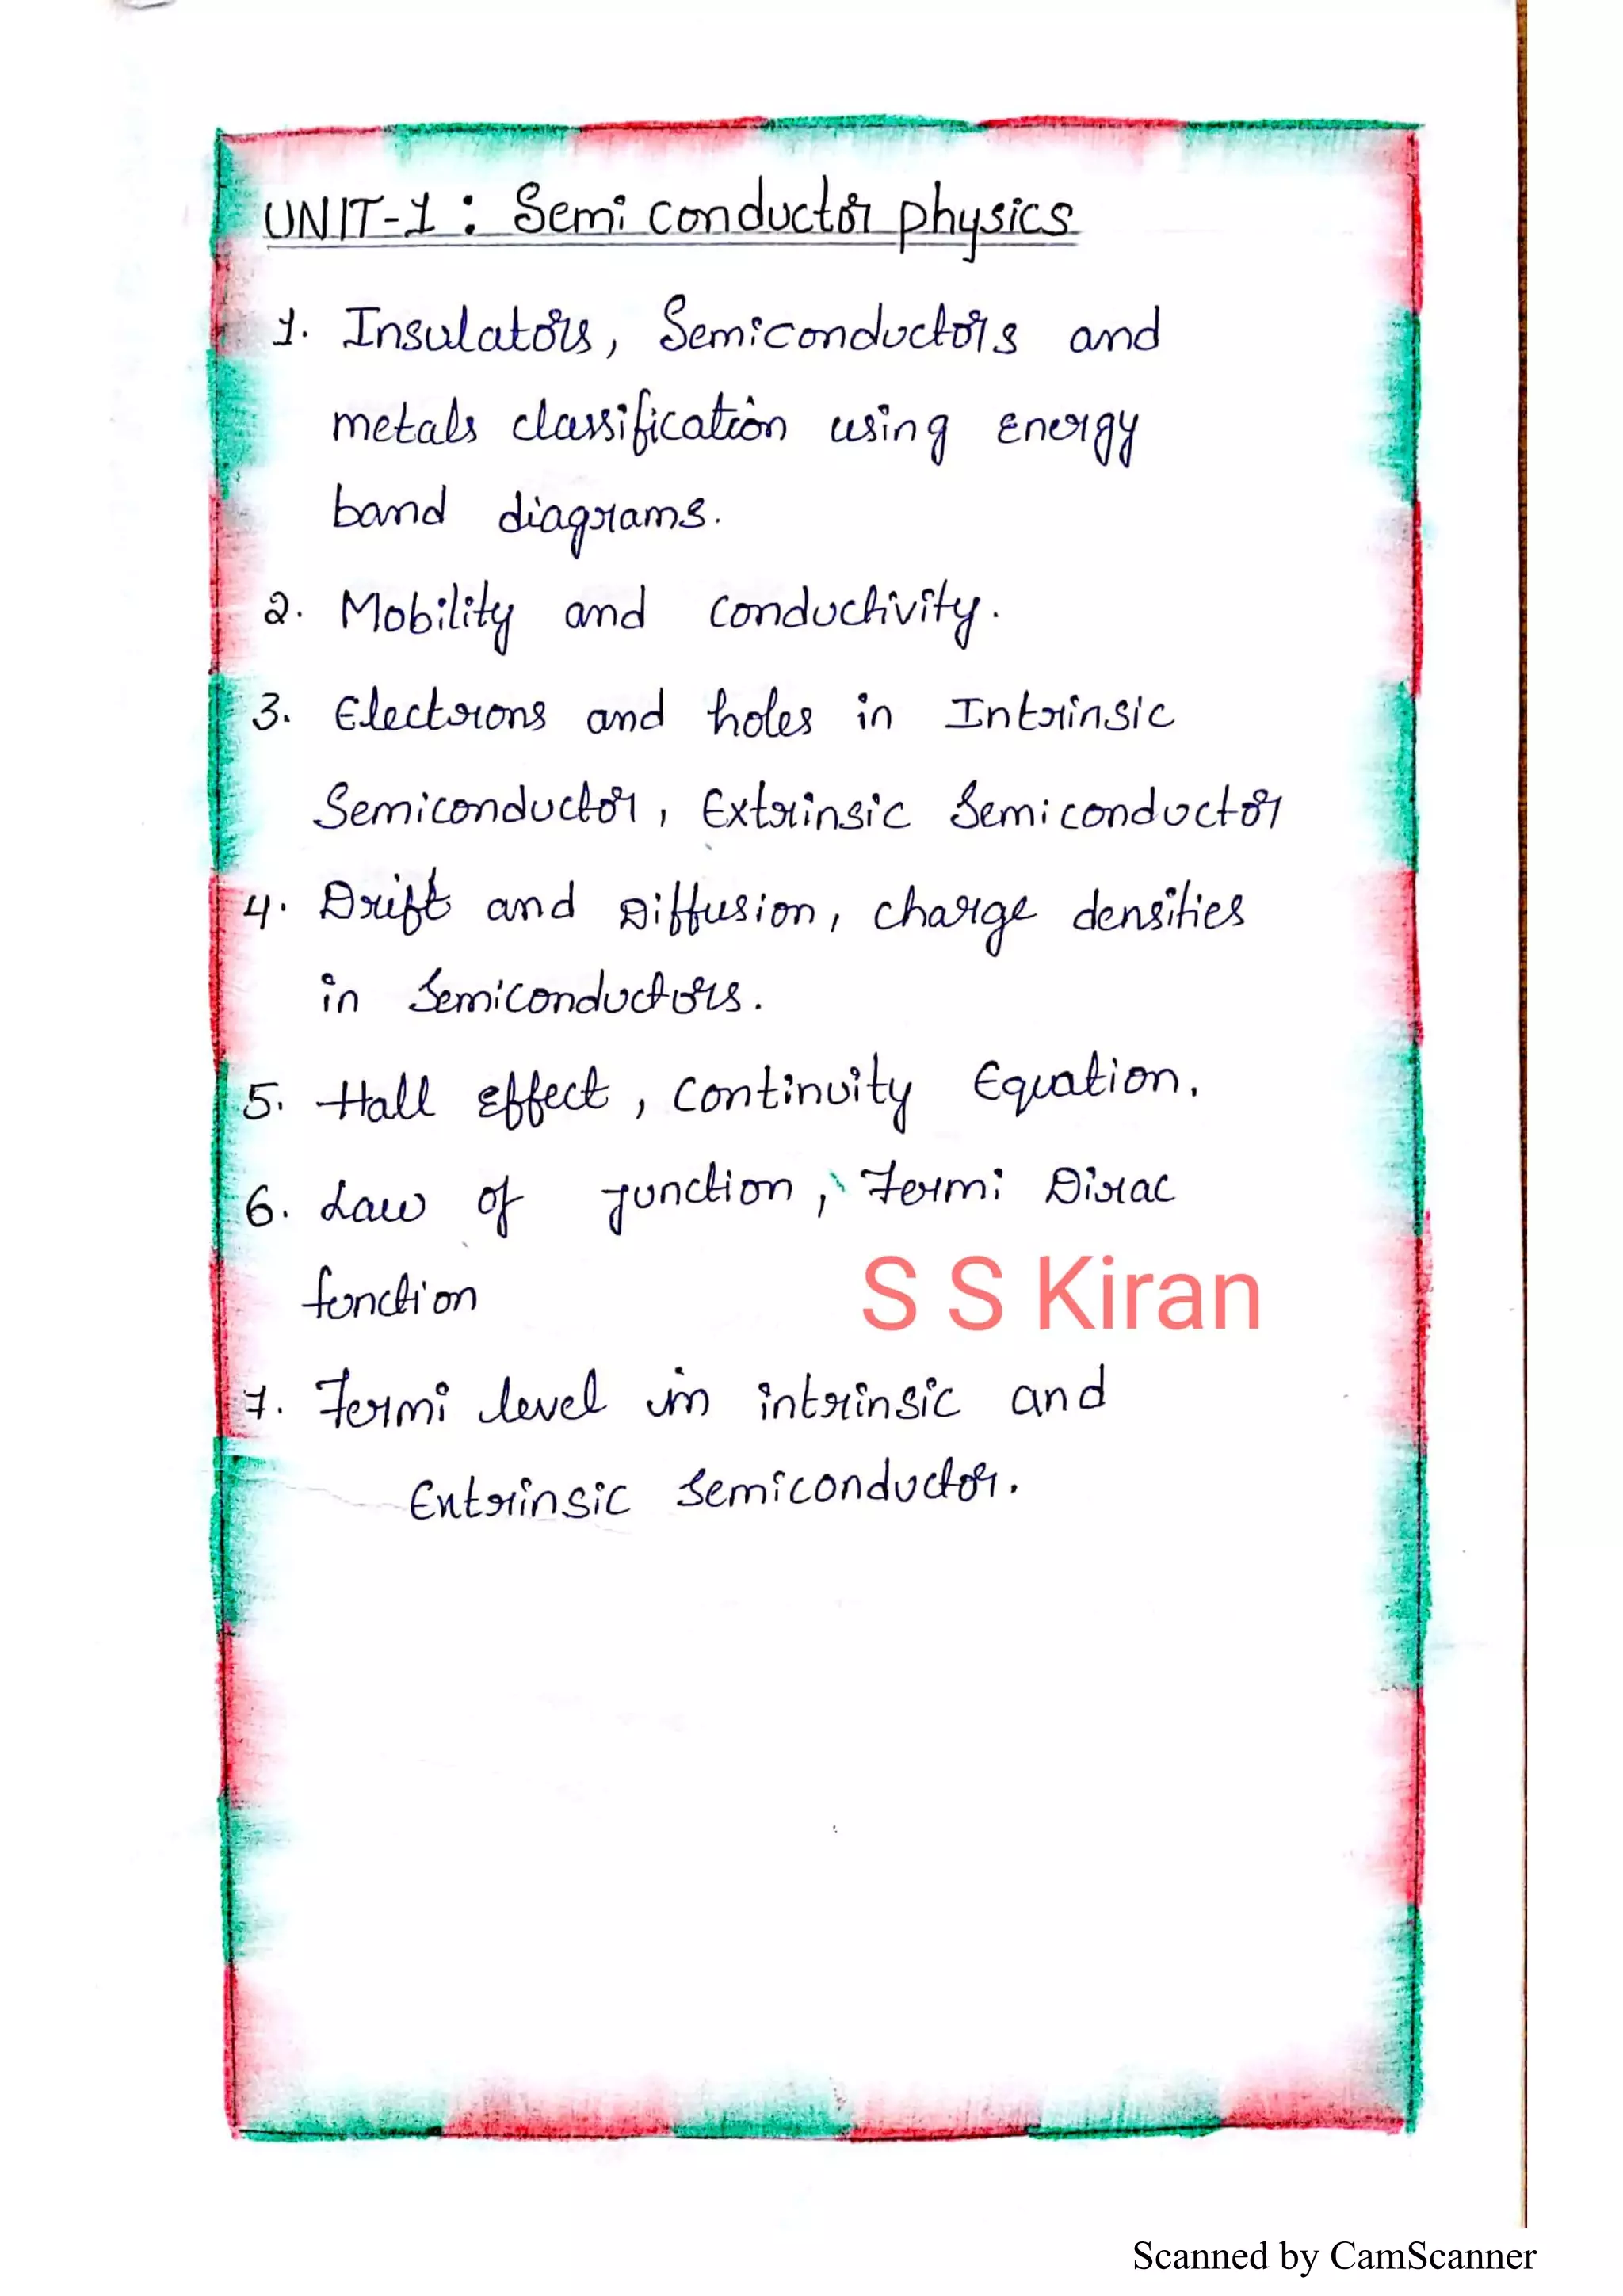 UNIT-1 : Semi conductor physics
1. Insulators, Semiconductors and
metals classification using Energy
band diagrams.
2. Mobility and conductivity.
3. Electrons and holes in Intrinsic
Semiconductor, Extrinsic Semiconductor
4. Drift and Diffusion, charge densities
in Semiconductors.
5. Hall effect, Continuity Equation.
6. Law of Junction, Fermi Dirac
function
S S Kiran
7. Fermi level in intrinsic and
Extrinsic Semiconductor.
Scanned by CamScanner